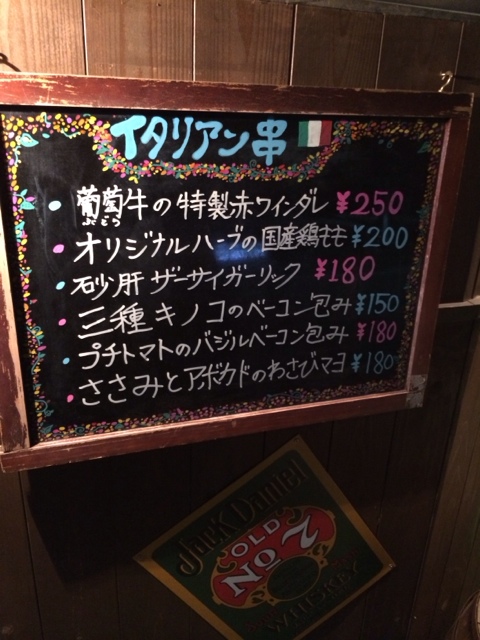 イタリアン串
・葡萄牛の特製赤ワインダレ ¥250
ぶどう
・オリジナルハーブの国産鶏もも ¥200
・砂肝 ザーサイガーリック ¥180
・三種キノコのベーコン包み ¥150
・プチトマトのバジルベーコン包み ¥180
・ささみとアボカドのわさびマヨ ¥180
Jack Daniel
OLD
No 7
WHISKEY